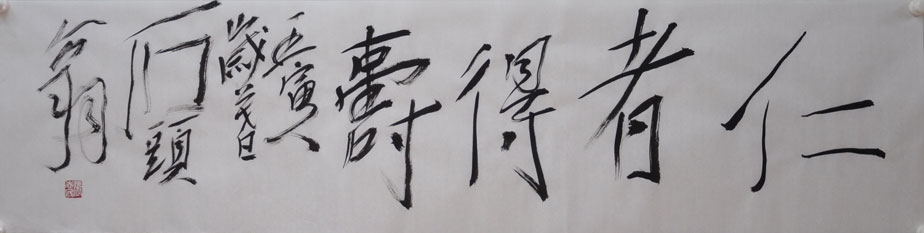 仁者得壽
壬寅
歲暮
頭
翁